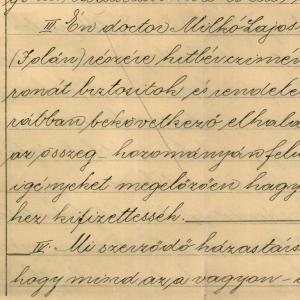 III. Én doctor Milkó Lajos
(Ipolán) részére hitbér czimén
ronát biztositok és rendelem
vábban bekövetkező elhalá
az összeg - hozományán felül
igényeket megelőzően hagy
hez kifizettessék.
IV. Mi szerződő házastárs
hogy mind az a vagyon - a